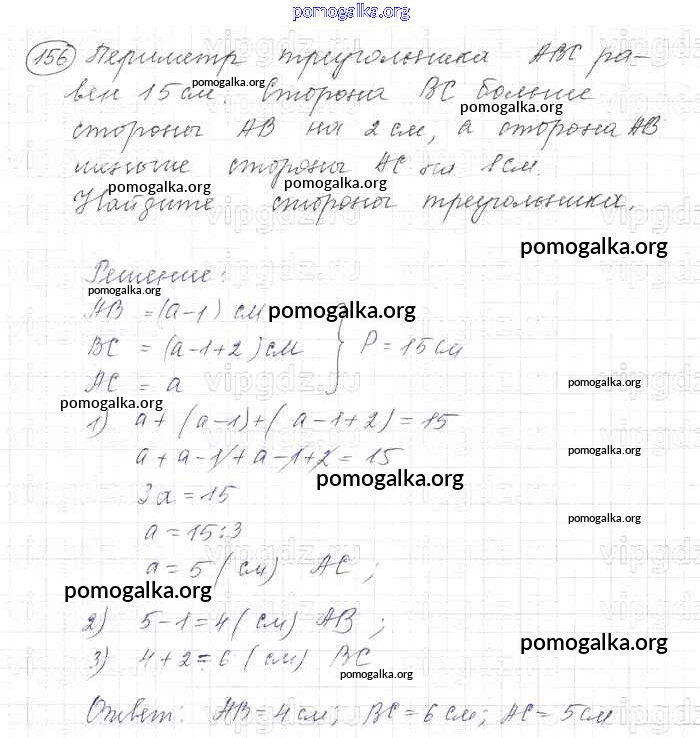 pomogalka.org
156 Периметр треугольника ABC ра-
pomogalka.org
вен 15 см. Сторона BC больше
pomogalka.org
стороны AB на 2 см, а сторона AB
меньше стороны AC на 1 см.
pomogalka.org pomogalka.org
Найдите стороны треугольника.
pomogalka.org
Решение:
pomogalka.org
AB = (a-1) см
pomogalka.org
BC = (a-1+2) см } P = 15 см
AC = a
pomogalka.org
pomogalka.org
1) a + (a-1) + (a-1+2) = 15
pomogalka.org
a + a-1 + a-1+2 = 15
pomogalka.org
3a = 15
pomogalka.org
a = 15:3
a = 5 (см) AC;
pomogalka.org
2) 5-1=4 (см) AB;
pomogalka.org
3) 4+2=6 (см) BC
pomogalka.org
Ответ: AB=4см; BC=6см; AC=5см